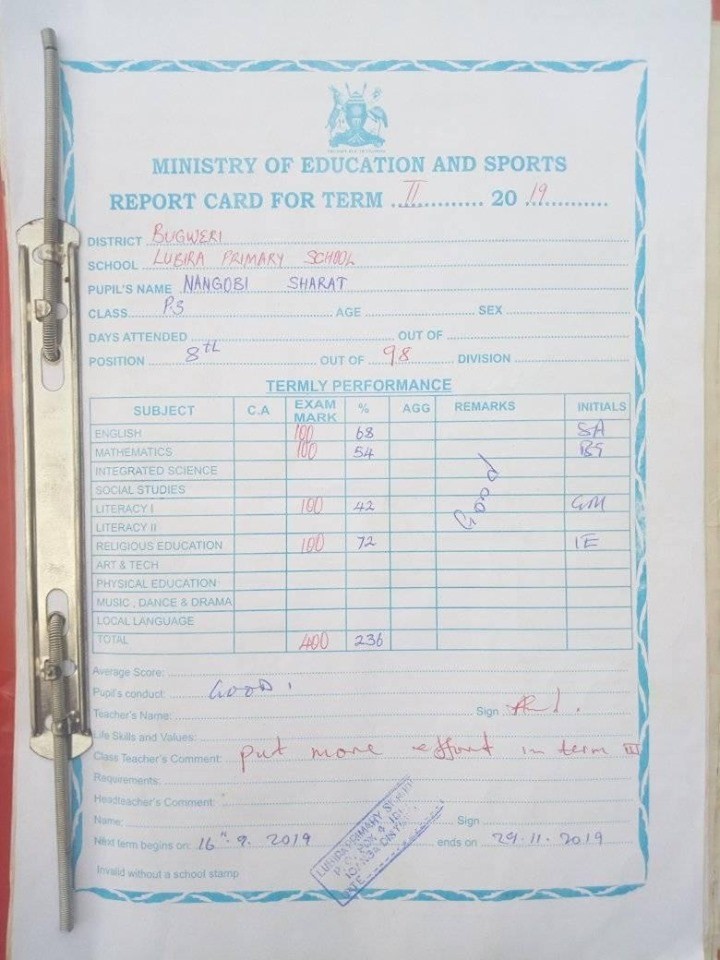 MINISTRY OF EDUCATION AND SPORTS
REPORT CARD FOR TERM II 20 19
DISTRICT BUGWERI
SCHOOL LUBIRA PRIMARY SCHOOL
PUPIL'S NAME NANGOBI SHARAT
CLASS P3 AGE SEX
DAYS ATTENDED OUT OF
POSITION 8th OUT OF 98 DIVISION
TERMLY PERFORMANCE
SUBJECT C.A EXAM MARK % AGG REMARKS INITIALS
ENGLISH 100 68 SA
MATHEMATICS 100 54
INTEGRATED SCIENCE
SOCIAL STUDIES
Good
LITERACY I 100 42 GM
LITERACY II
RELIGIOUS EDUCATION 100 72 IE
ART & TECH
PHYSICAL EDUCATION
MUSIC , DANCE & DRAMA
LOCAL LANGUAGE
TOTAL 400 236
Average Score:
Pupil's conduct: GOOD.
Teacher's Name: Sign
Life Skills and Values:
Class Teacher's Comment: put more effort in term III
Requirements:
Headteacher's Comment:
Name: Sign
Next term begins on: 16th. 9. 2019 ends on 29.11.2019
LUBIRA PRIMARY
DATE
Invalid without a school stamp